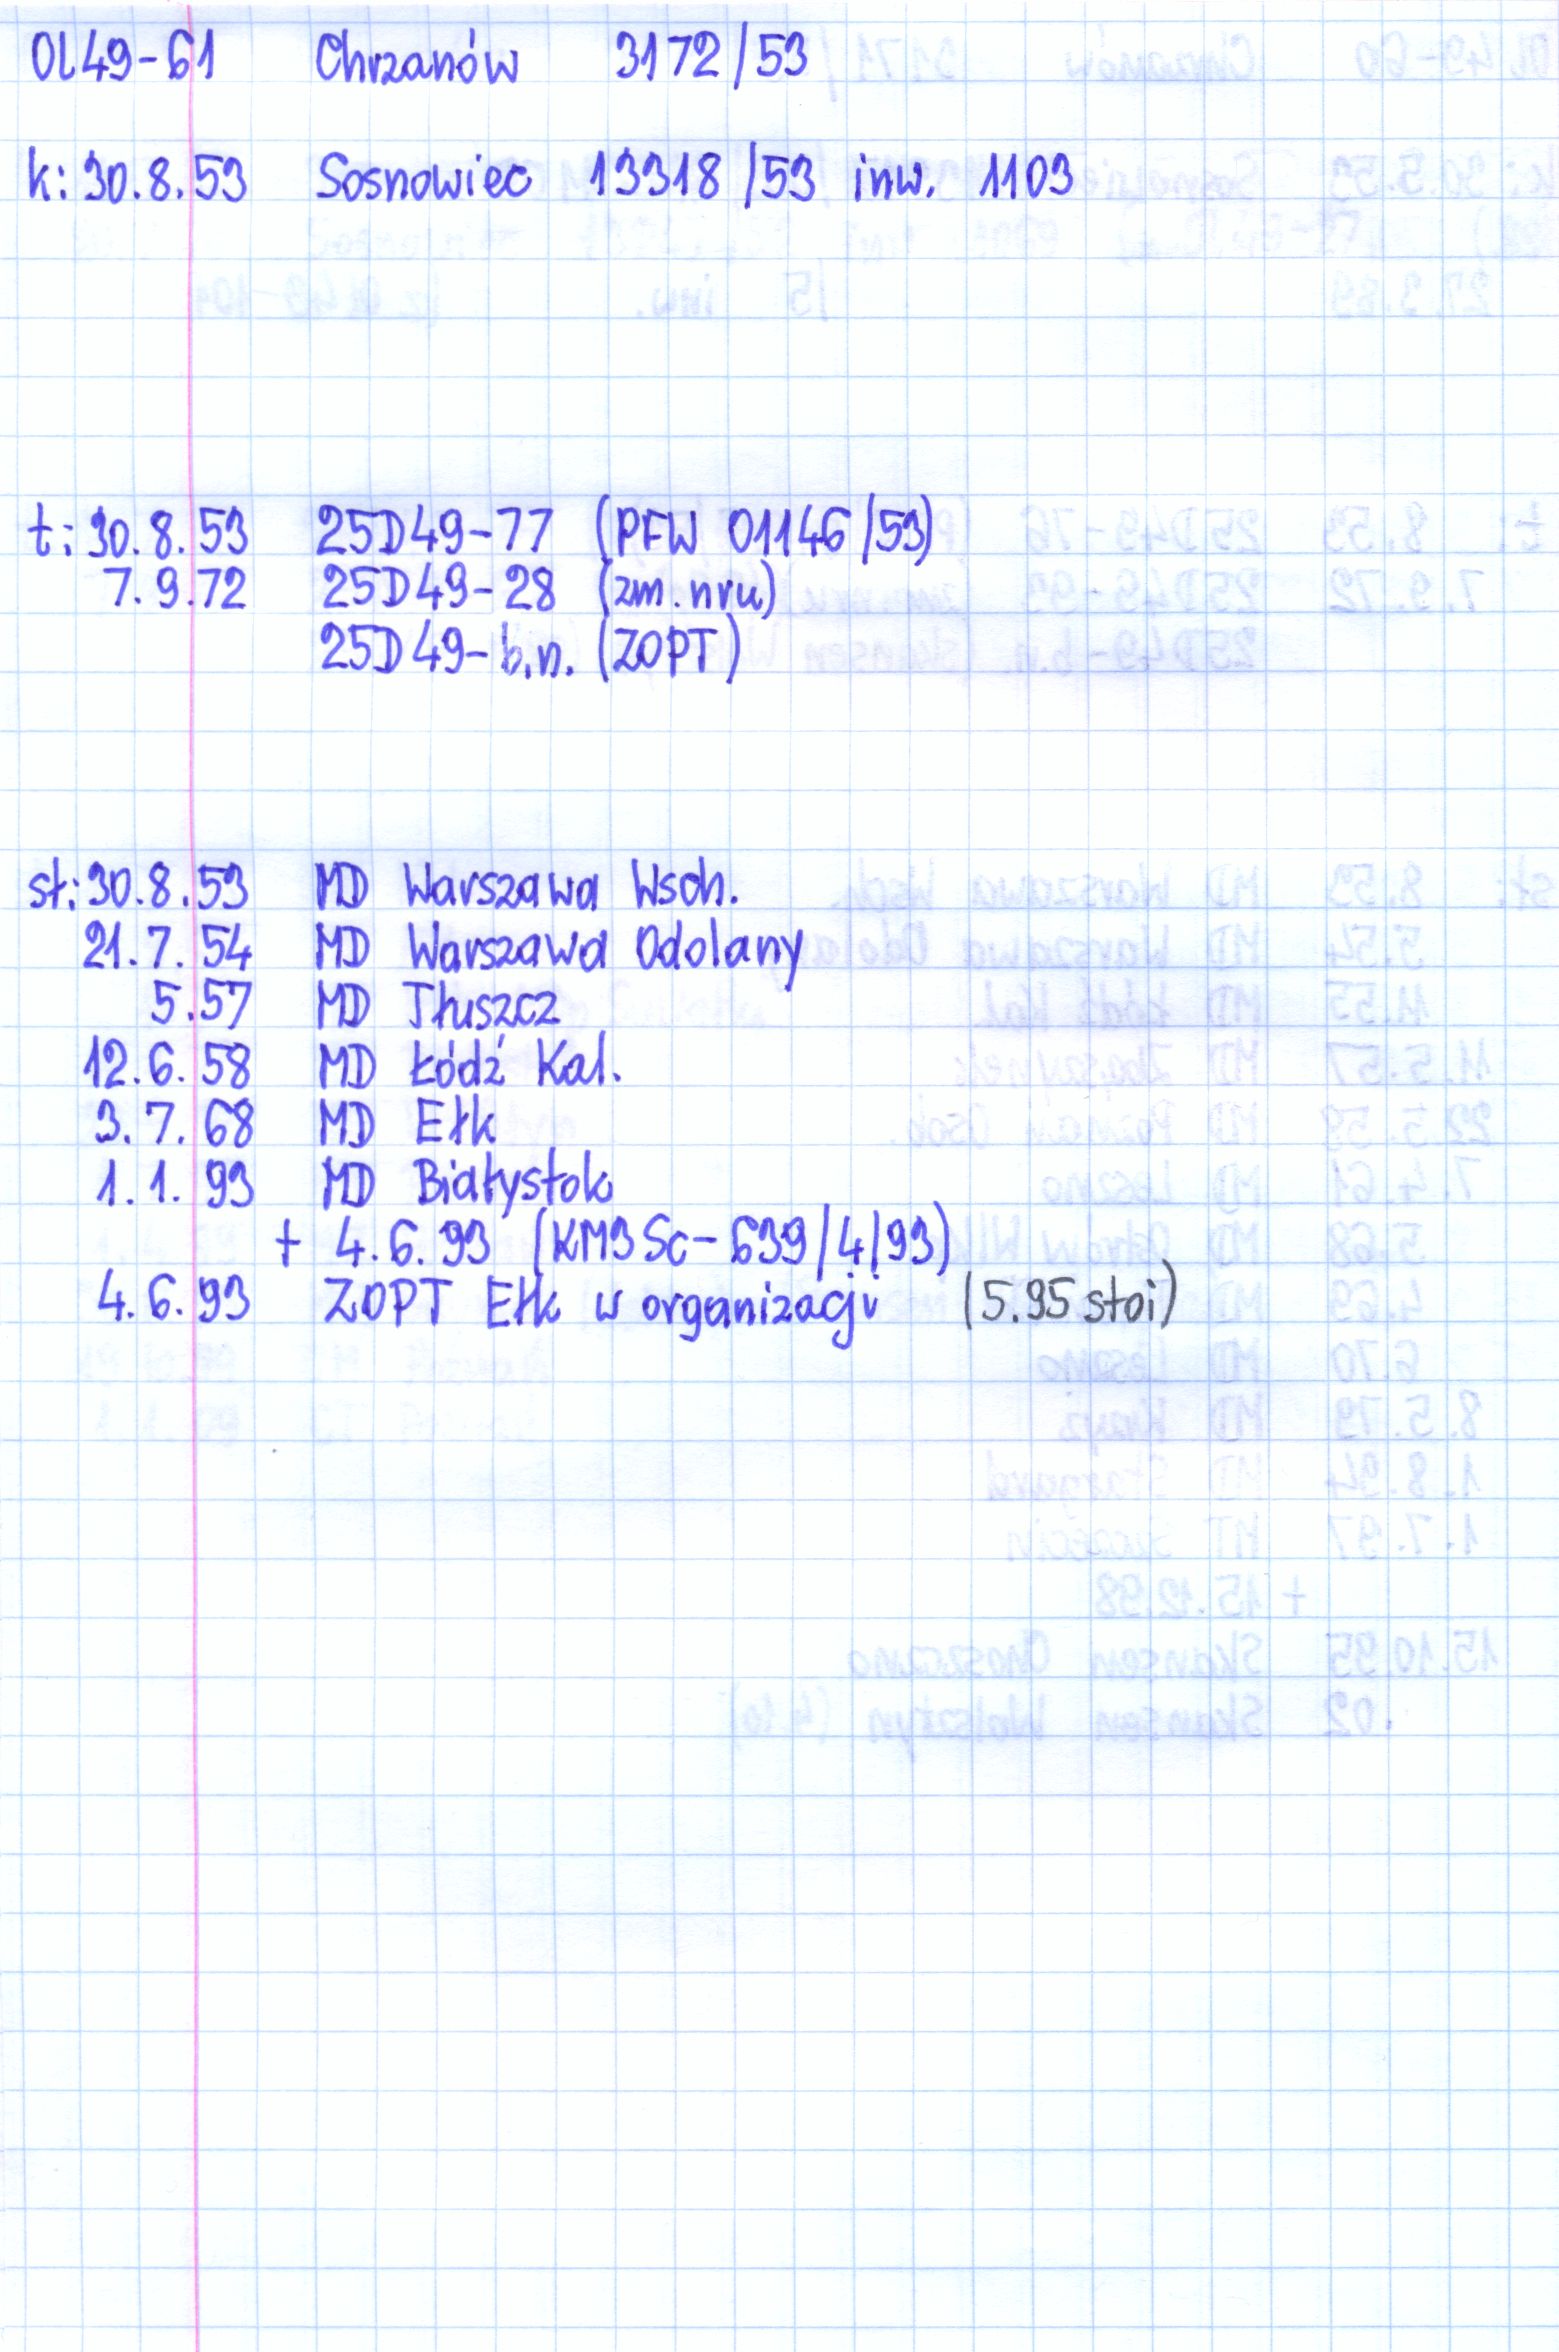 Ol49-61 Chrzanów 3172/53
k: 30.8.53 Sosnowiec 13318/53 inw. 1103
t: 30.8.53 25D49-77 (PFW 01146/53)
7.9.72 25D49-28 (zm. nru)
25D49-b.n. (ZOPT)
st: 30.8.53 MD Warszawa Wsch.
21.7.54 MD Warszawa Odolany
5.57 MD Tłuszcz
12.6.58 MD Łódź Kal.
3.7.68 MD Ełk
1.1.93 MD Białystok
+ 4.6.93 (KM3Sc-639/4/93)
4.6.93 ZOPT Ełk w organizacji (5.95 stoi)